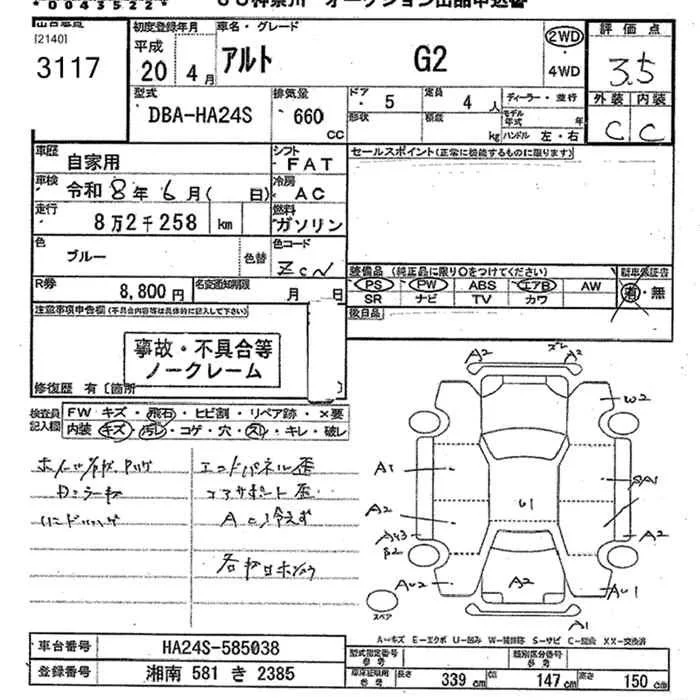 JU神奈川 オークション出品申込書
[2140]
3117
初度登録年月
平成
20 4月
車名・グレード
アルト G2
2WD
・
4WD
評価点
3.5
外装 内装
C C
型式
DBA-HA24S
排気量
660
CC
ドア・形状
5
定員 4 人
積載 kg
ディーラー・並行
モデル年式 年
ハンドル 左・右
車歴
自家用
シフト
FAT
セールスポイント(正常に機能するものに限ります)
車検
令和 8年 6月( 日)
冷房
AC
走行
8万2千258 km
燃料
ガソリン
色
ブルー
色替
色コード
ZCN
装備品 (純正品に限り○をつけてください)
PS PW ABS エアB AW
SR ナビ TV カワ
新車保証書
有・無
R券
8,800円
名変通知期限
月 日
後日品
注意事項申告欄(不具合内容等は具体的に記入して下さい)
事故・不具合等
ノークレーム
修復歴 有〔箇所
検査員
記入欄
FW キズ・飛石・ヒビ割・リペア跡・×要
内装 キズ・汚レ・コゲ・穴・スレ・キレ・破レ
エンドパネル歪
コアサポート歪
A2 ズレ A2
W2
A1
A2
U1
A2
A2
A1
スペア
A-キズ E-エクボ U-凹み W-補修跡 S-サビ C-腐蝕 XX-交換済
車台番号
HA24S-585038
登録番号
湘南 581 き 2385
型式指定番号
参考
類別区分番号
参考
車庫証明用
参考
長さ 339 cm 幅 147 cm 高さ 150 cm